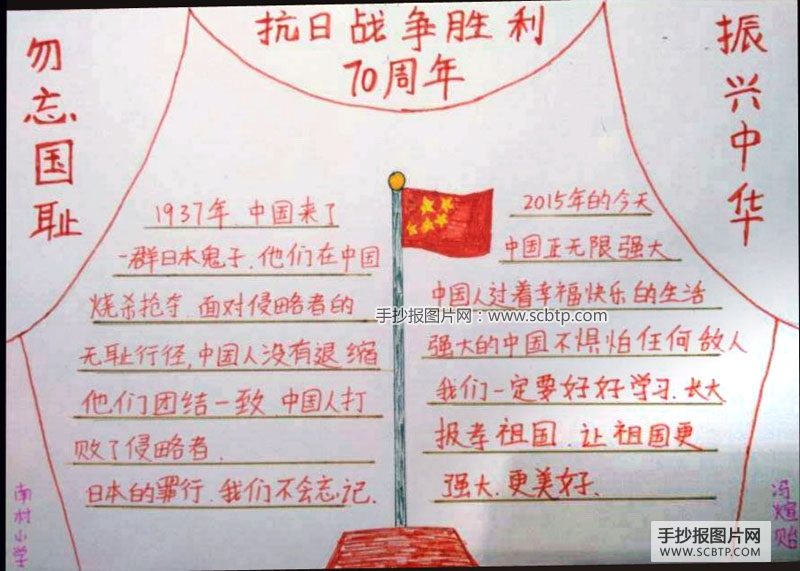 抗日战争胜利
70周年
勿忘国耻
振兴中华
1937年.中国来了
一群日本鬼子.他们在中国
烧杀抢夺.面对侵略者的
无耻行径,中国人没有退缩
他们团结一致.中国人打
败了侵略者.
日本的罪行.我们不会忘记.
2015年的今天
中国正无限强大
中国人过着幸福快乐的生活
强大的中国不惧怕任何敌人
我们一定要好好学习.长大
报孝祖国.让祖国更
强大.更美好.
手抄报图片网:www.scbtp.com
南村小学
冯煊贻
手抄报图片网
WWW.SCBTP.COM